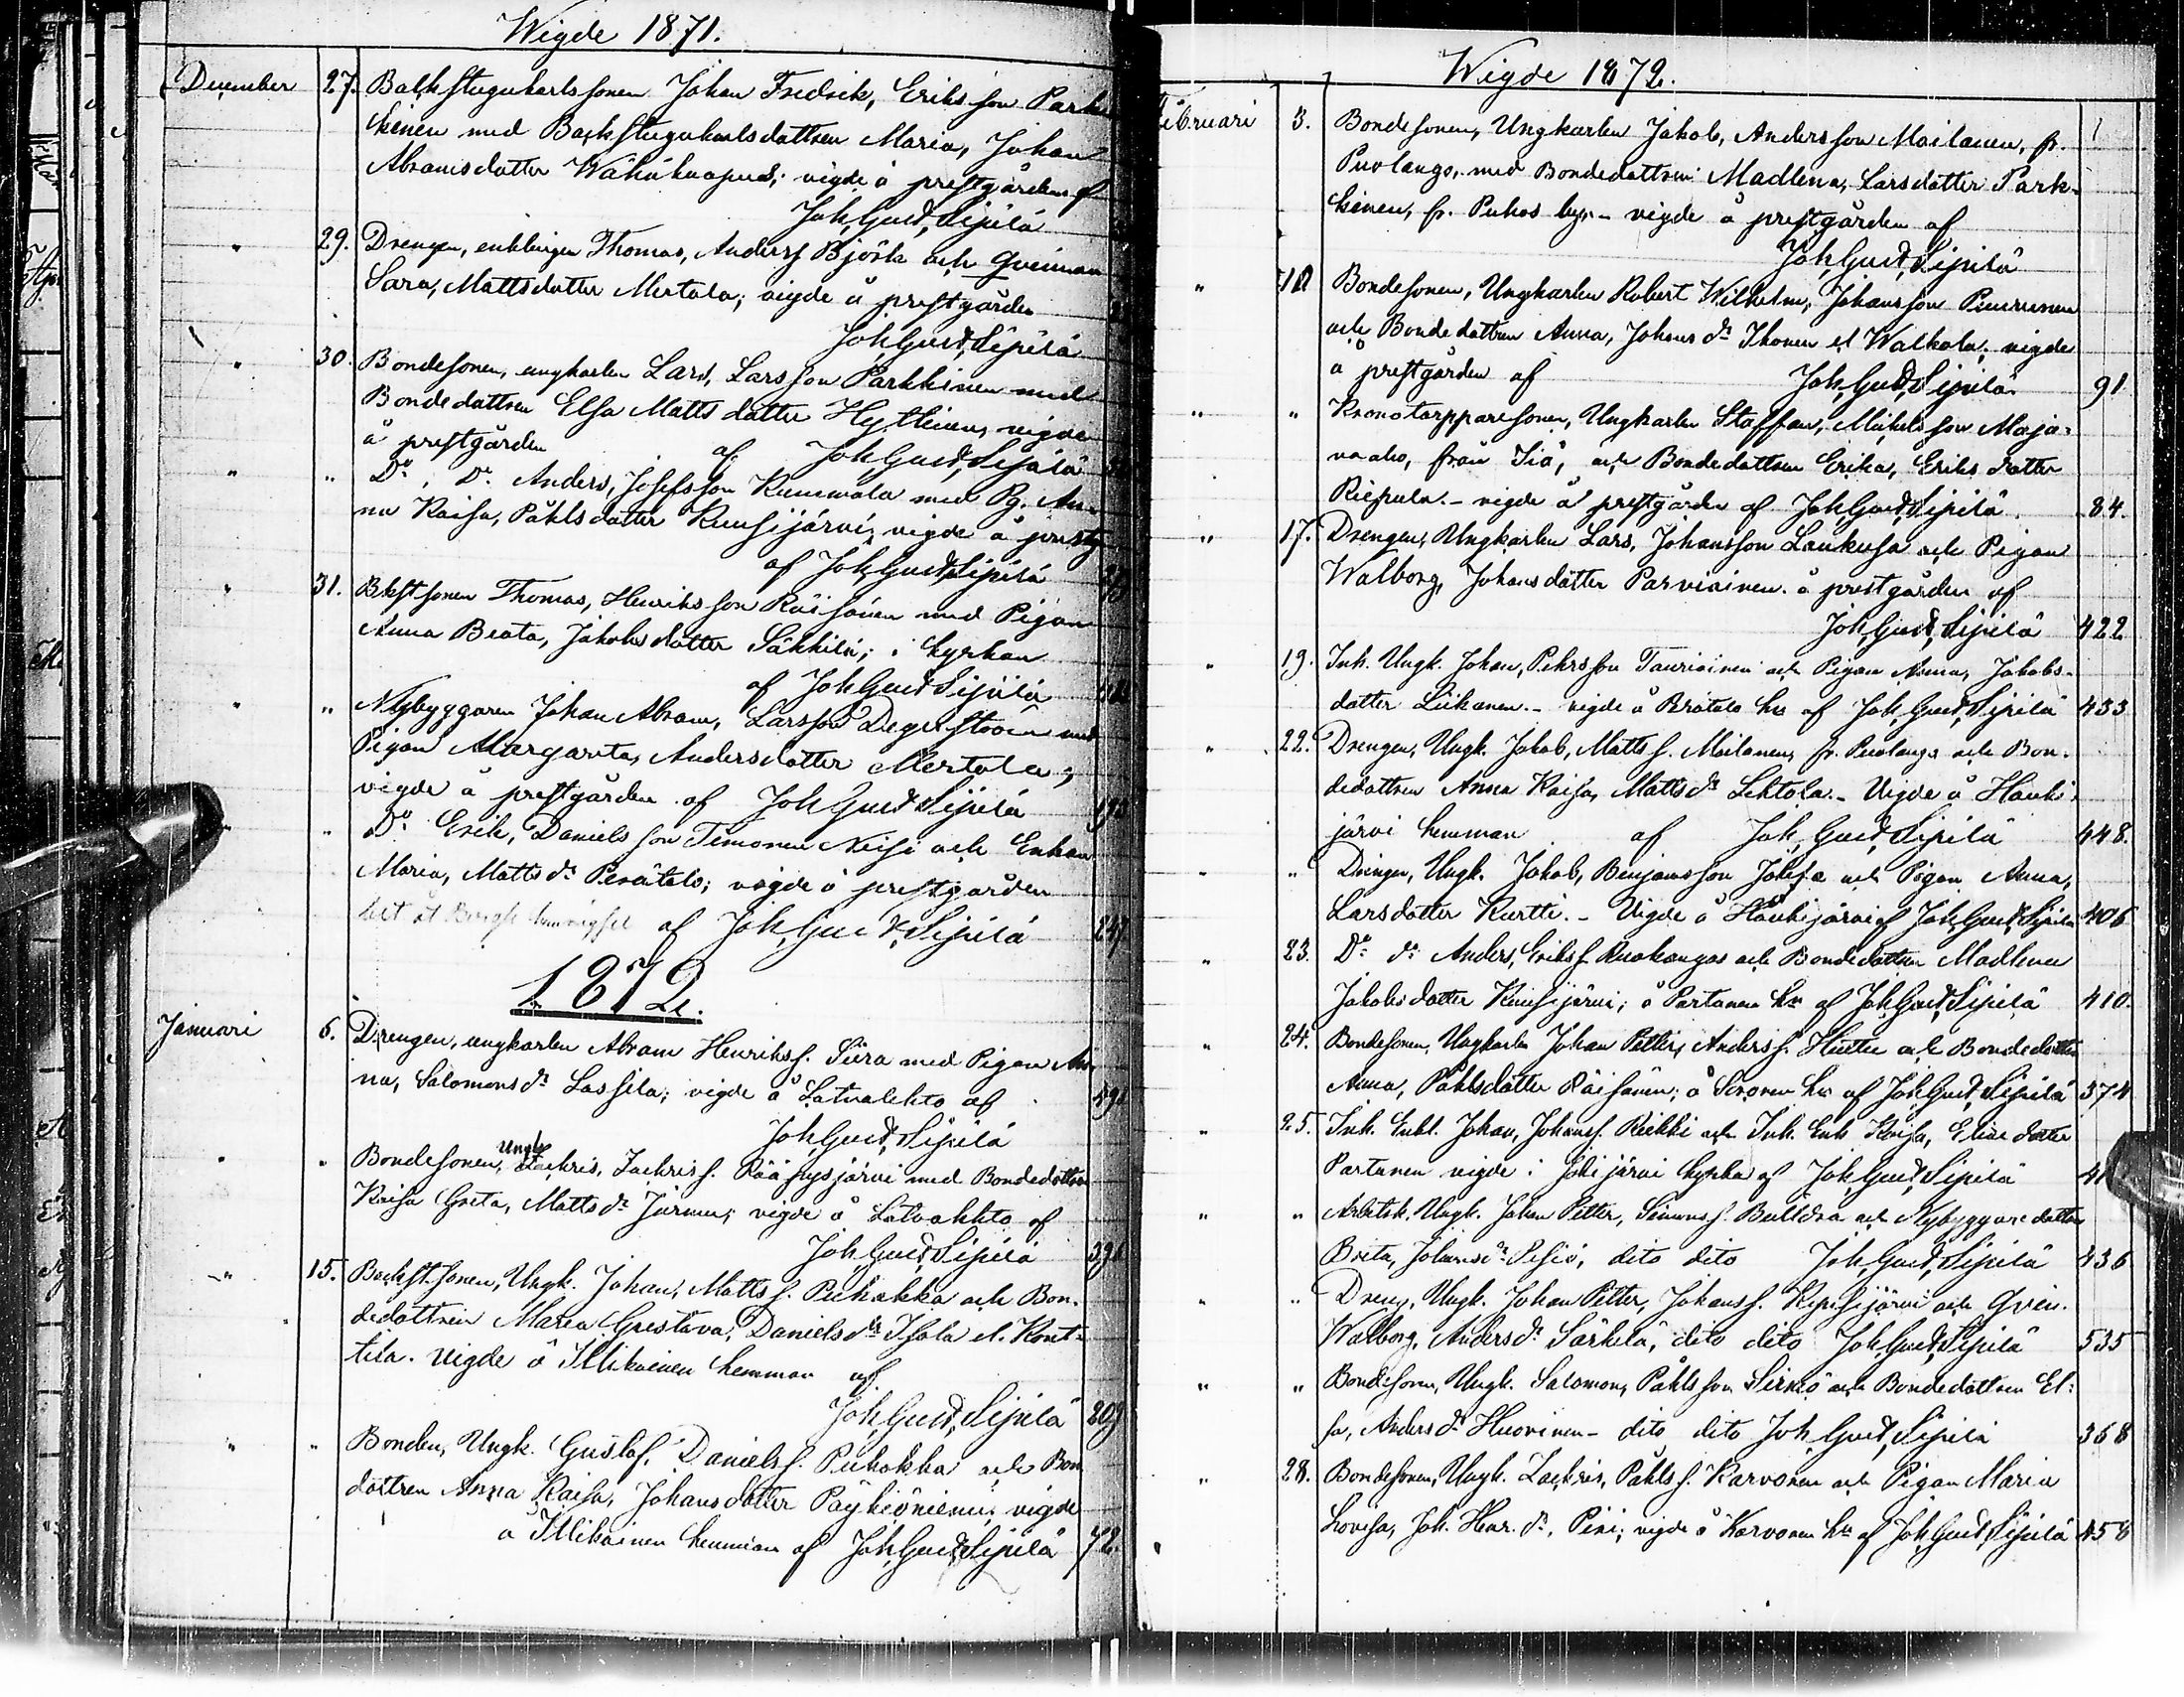 Wigde 1871.
December 27. Backstugukarlssonen Johan Fredrik, Eriksson Park-
kinen med Backstugukarlsdottren Maria, Johan
Abramsdotter ; vigde å prestgården af
Joh, Gust, Sipilä
" 29. Drengen, enklingen Thomas, Anderss Björk och Qvinnan
Sara, Mattsdotter Mertala; vigde å prestgården
Joh, Gust, Sipilä
" 30. Bondesonen, ungkarlen Lars, Larsson Parkkinen med
Bondedottren Elsa Matts dotter Hyttinen, vigde
å prestgården af Joh, Gust, Sipilä
" " Do, Do Anders, Josefsson med Pg. An-
na Kaisa, Påhlsdotter Kuusijärvi, vigde å prestg
af Joh, Gust, Sipilä
" 31. Bkst sonen Thomas, Henriksson Räisänen med Pigan
Anna Beata, Jakobsdotter Säkkilä; i kyrkan
af Joh, Gust, Sipilä
" " Nybyggaren Johan Abram, Larsson Degerström med
Pigan Margareta, Andersdotter Mertala;
vigde å prestgården af Joh, Gust, Sipilä
" Do Erik, Danielsson Timonen och Enkan
Maria, Matts dr Perätalo; vigde å prestgården
af Joh, Gust, Sipilä 247
1872.
Januari 6. Drengen, ungkarlen Abram Henrikss. Siira med Pigan An-
na, Salomons dr Lassila; vigde å Latvalehto af
Joh, Gust, Sipilä
" " Bondesonen, Ungk Zackris, Zackriss. Rääpysjärvi med Bondedottren
Kaisa Greta, Matts dr Jurmu; vigde å Latvalehto af
Joh, Gust, Sipilä
" 15. Backst. sonen, Ungk. Johan, Matts s. Puhakka och Bon-
dedottren Maria Gustava, Daniels dr Isola el. Kont-
tila. vigde å Illikainen hemman af
Joh, Gust, Sipilä 209
" " Bonden, Ungk. Gustaf, Daniels s. Puhakka och Bon
dottren Anna Kaisa, Johansdotter vigde
å Illikainen hemman af Joh, Gust, Sipilä 72.
Wigde 1872.
Februari 3. Bondesonen, Ungkarlen Jakob, Andersson Moilanen, fr.
Puolango, med Bondedottren Madlena, Larsdotter Park-
kinen, fr. Puhos by. - vigde å prestgården af
Joh, Gust, Sipilä
" 10 Bondesonen, Ungkarlen Robert Wilhelm, Johansson
och Bondedottren Anna, Johans dr Ihonen el Walkola; vigde
å prestgården af Joh, Gust, Sipilä 91
" " Kronotorpparesonen, Ungkarlen Staffan, Mickelsson Maja-
vaaho, från Iiå, och Bondedottren Erika, Eriks dotter
Riepula. - vigde å prestgården af Joh, Gust, Sipilä. 84.
" 17. Drengen, Ungkarlen Lars, Johansson Laukusa och Pigan
Walborg, Johansdotter Parviainen. å prestgården af
Joh, Gust, Sipilä 422
" 19. Inh. Ungk. Johan, Pehrsson Tauriainen och Pigan Anna, Jakobs-
dotter Liikanen. - vigde å hn af Joh, Gust, Sipilä 433
" 22. Drengen, Ungk. Jakob, Matts s. Moilanen, fr. Puolango och Bon-
dedottren Anna Kaisa, Matts dr Lehtola. - Vigde å Hauki-
järvi hemman af Joh, Gust, Sipilä 448.
" " Drengen, Ungk. Jakob, Benjamsson och Pigan Anna,
Larsdotter Kurtti. - Vigde å Haukijärvi af Joh, Gust, Sipilä 406
" 23. Do do Anders, Eriks s. Ruokangas och Bondedottren Madlena
Jakobsdotter Kuusijärvi; å Partanen hn af Joh, Gust, Sipilä 410.
" 24. Bondesonen, Ungkarlen Johan Petter, Anders s. och Bondedottren
Anna, Påhlsdotter Räisänen; å Soronen hn af Joh, Gust, Sipilä 574
" 25. Inh. Enkl. Johan, Johans s. Riekki och Inh. Enk Kaisa, Elias dotter
Partanen vigde i kyrka af Joh, Gust, Sipilä 41
" " Arbetsk. Ungk. Johan Petter, Simons s. och Nybyggare dottren
Brita, Johans dr , dito dito Joh, Gust, Sipilä 436
" " Dreng, Ungk. Johan Petter, Johans s. och Qvin.
Walborg, Anders dr Särkelä, dito dito Joh, Gust, Sipilä 535
" " Bondesonen, Ungk. Salomon, Påhls son Sirniö och Bondedottren El-
sa, Anders dr Huovinen - dito dito Joh, Gust, Sipilä 368
" 28. Bondesonen, Ungk. Zackris, Påhls s. Karvonen och Pigan Maria
Lovisa, Joh. Henr. dr, Piri; vigde å Karvonen hn af Joh, Gust, Sipilä 458